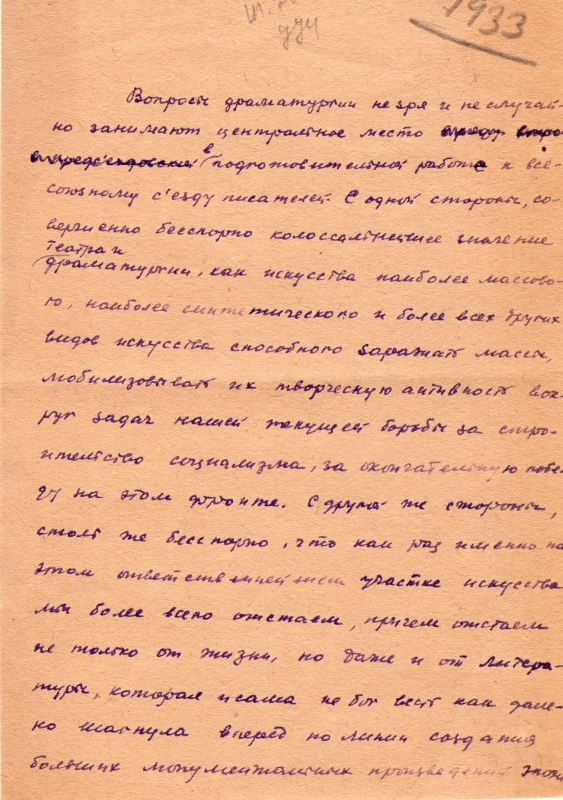 1933
Вопросы драматургии не зря и не случай-
но занимают центральное место
в подготовительной работе к все-
союзному с'езду писателей. С одной стороны, со-
вершенно бесспорно колоссальнейшее значение
театра и
драматургии, как искусства наиболее массово-
го, наиболее синтетического и более всех других
видов искусства способного заражать массы,
мобилизовывать их творческую активность вок-
руг задач нашей текущей борьбы за стро-
ительство социализма, за окончательную побе-
ду на этом фронте. С другой же стороны,
столь же бесспорно, что как раз именно на
этом ответственнейшем участке искусства
мы более всего отстаем, причем отстаем
не только от жизни, но даже и от литера-
туры, которая и сама не бог весть как дале-
ко шагнула вперед по линии создания
больших монументальных произведений эпохи